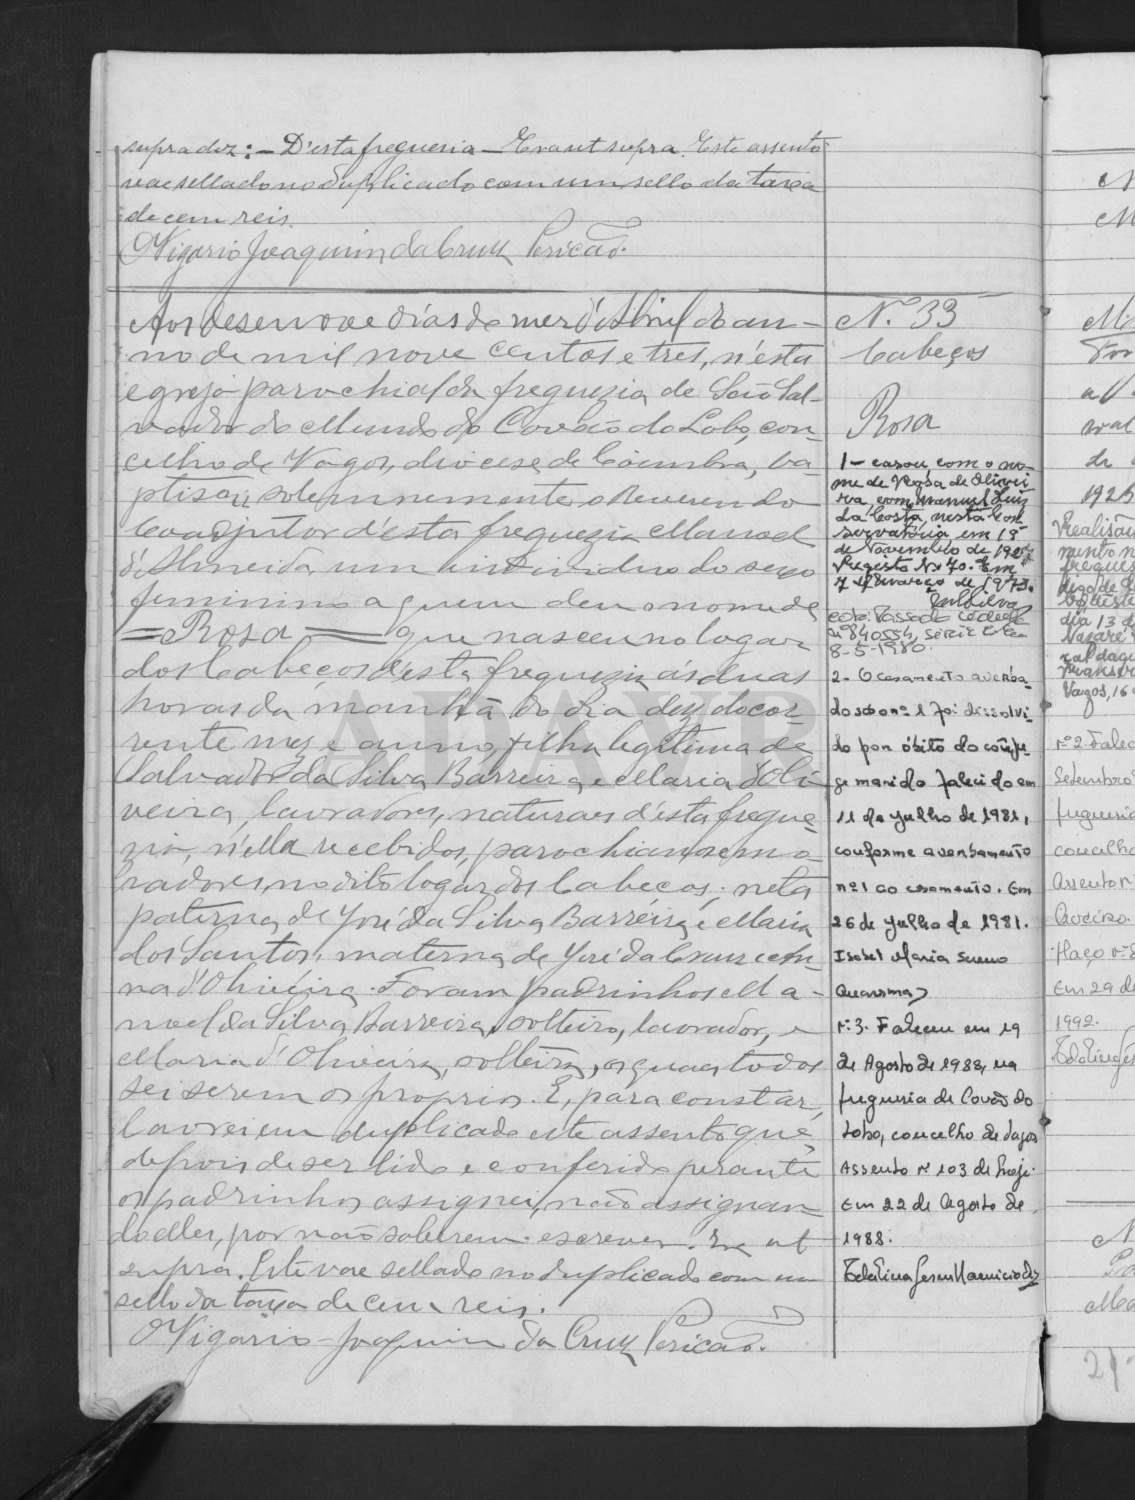 supra diz: — D'esta freguesia — Era ut supra. Este assento
vae sellado no duplicado com um sello da taxa
de cem reis.
O Vigario Joaquim da Cruz Pericão.
Aos desenove dias do mez d'Abril do an-
no de mil nove centos e tres, n'esta
egreja parochial da freguezia de São Sal-
vador do Mundo do Covão do Lobo, con-
celho de Vagos, diocese de Coimbra, ba-
ptisou solemnemente o Reverendo
Coadjutor d'esta freguezia Manoel
d'Almeida um individuo do sexo
feminino a quem deu o nome de
= Rosa = que nasceu no logar
dos Cabeços d'esta freguezia ás duas
horas da manhã do dia dez do cor-
rente mez e anno, filha legitima de
Salvador da Silva Barreira e Maria d'Oli-
veira, lavradores, naturaes d'esta fregue-
zia, n'ella recebidos, parochianos e mo-
radores no dito logar dos Cabeços; neta
paterna de José da Silva Barreira e Maria
dos Santos, materna de José da Cruz e
d'Oliveira. Foram padrinhos Ma-
noel da Silva Barreira, solteiro, lavrador, e
Maria d'Oliveira, solteira, os quaes todos
sei serem os proprios. E, para constar,
lavrei em duplicado este assento que,
depois de ser lido e conferido perante
os padrinhos assignei, não assignan-
do elles, por não saberem escrever. Era ut
supra. Este vae sellado no duplicado com um
sello da taxa de cem reis.
O Vigario — Joaquim da Cruz Pericão.
N.º 33
Cabeços
Rosa
1 — casou com o no-
me de Rosa de Olivei-
ra, com Manuel Luis
da Costa, nesta Con-
servatória, em 19
de Novembro de
Registo Nº 70. Em
7 de Março de 1973.
Passada cedula
nº 840554, série
8-5-1980.
2 - O casamento averba-
do sob o nº 1 foi dissolvi-
do por óbito do cônju-
ge marido falecido em
11 de Julho de 1981,
conforme averbamento
nº 1 ao casamento. Em
26 de Julho de 1981.
Isabel Maria
Quaresma
Nº 3. Faleceu em 19
de Agosto de 1988, na
freguesia de Covão do
Lobo, concelho de Vagos
Assento nº 103 de hoje.
Em 22 de Agosto de
1988.
1925
dia 13 de
Nazaré
Vagos, 16
nº 2. Falec
Setembro
freguesia
concelho
Assento nº
Aveiro.
Maço nº
Em 29 de
1992.